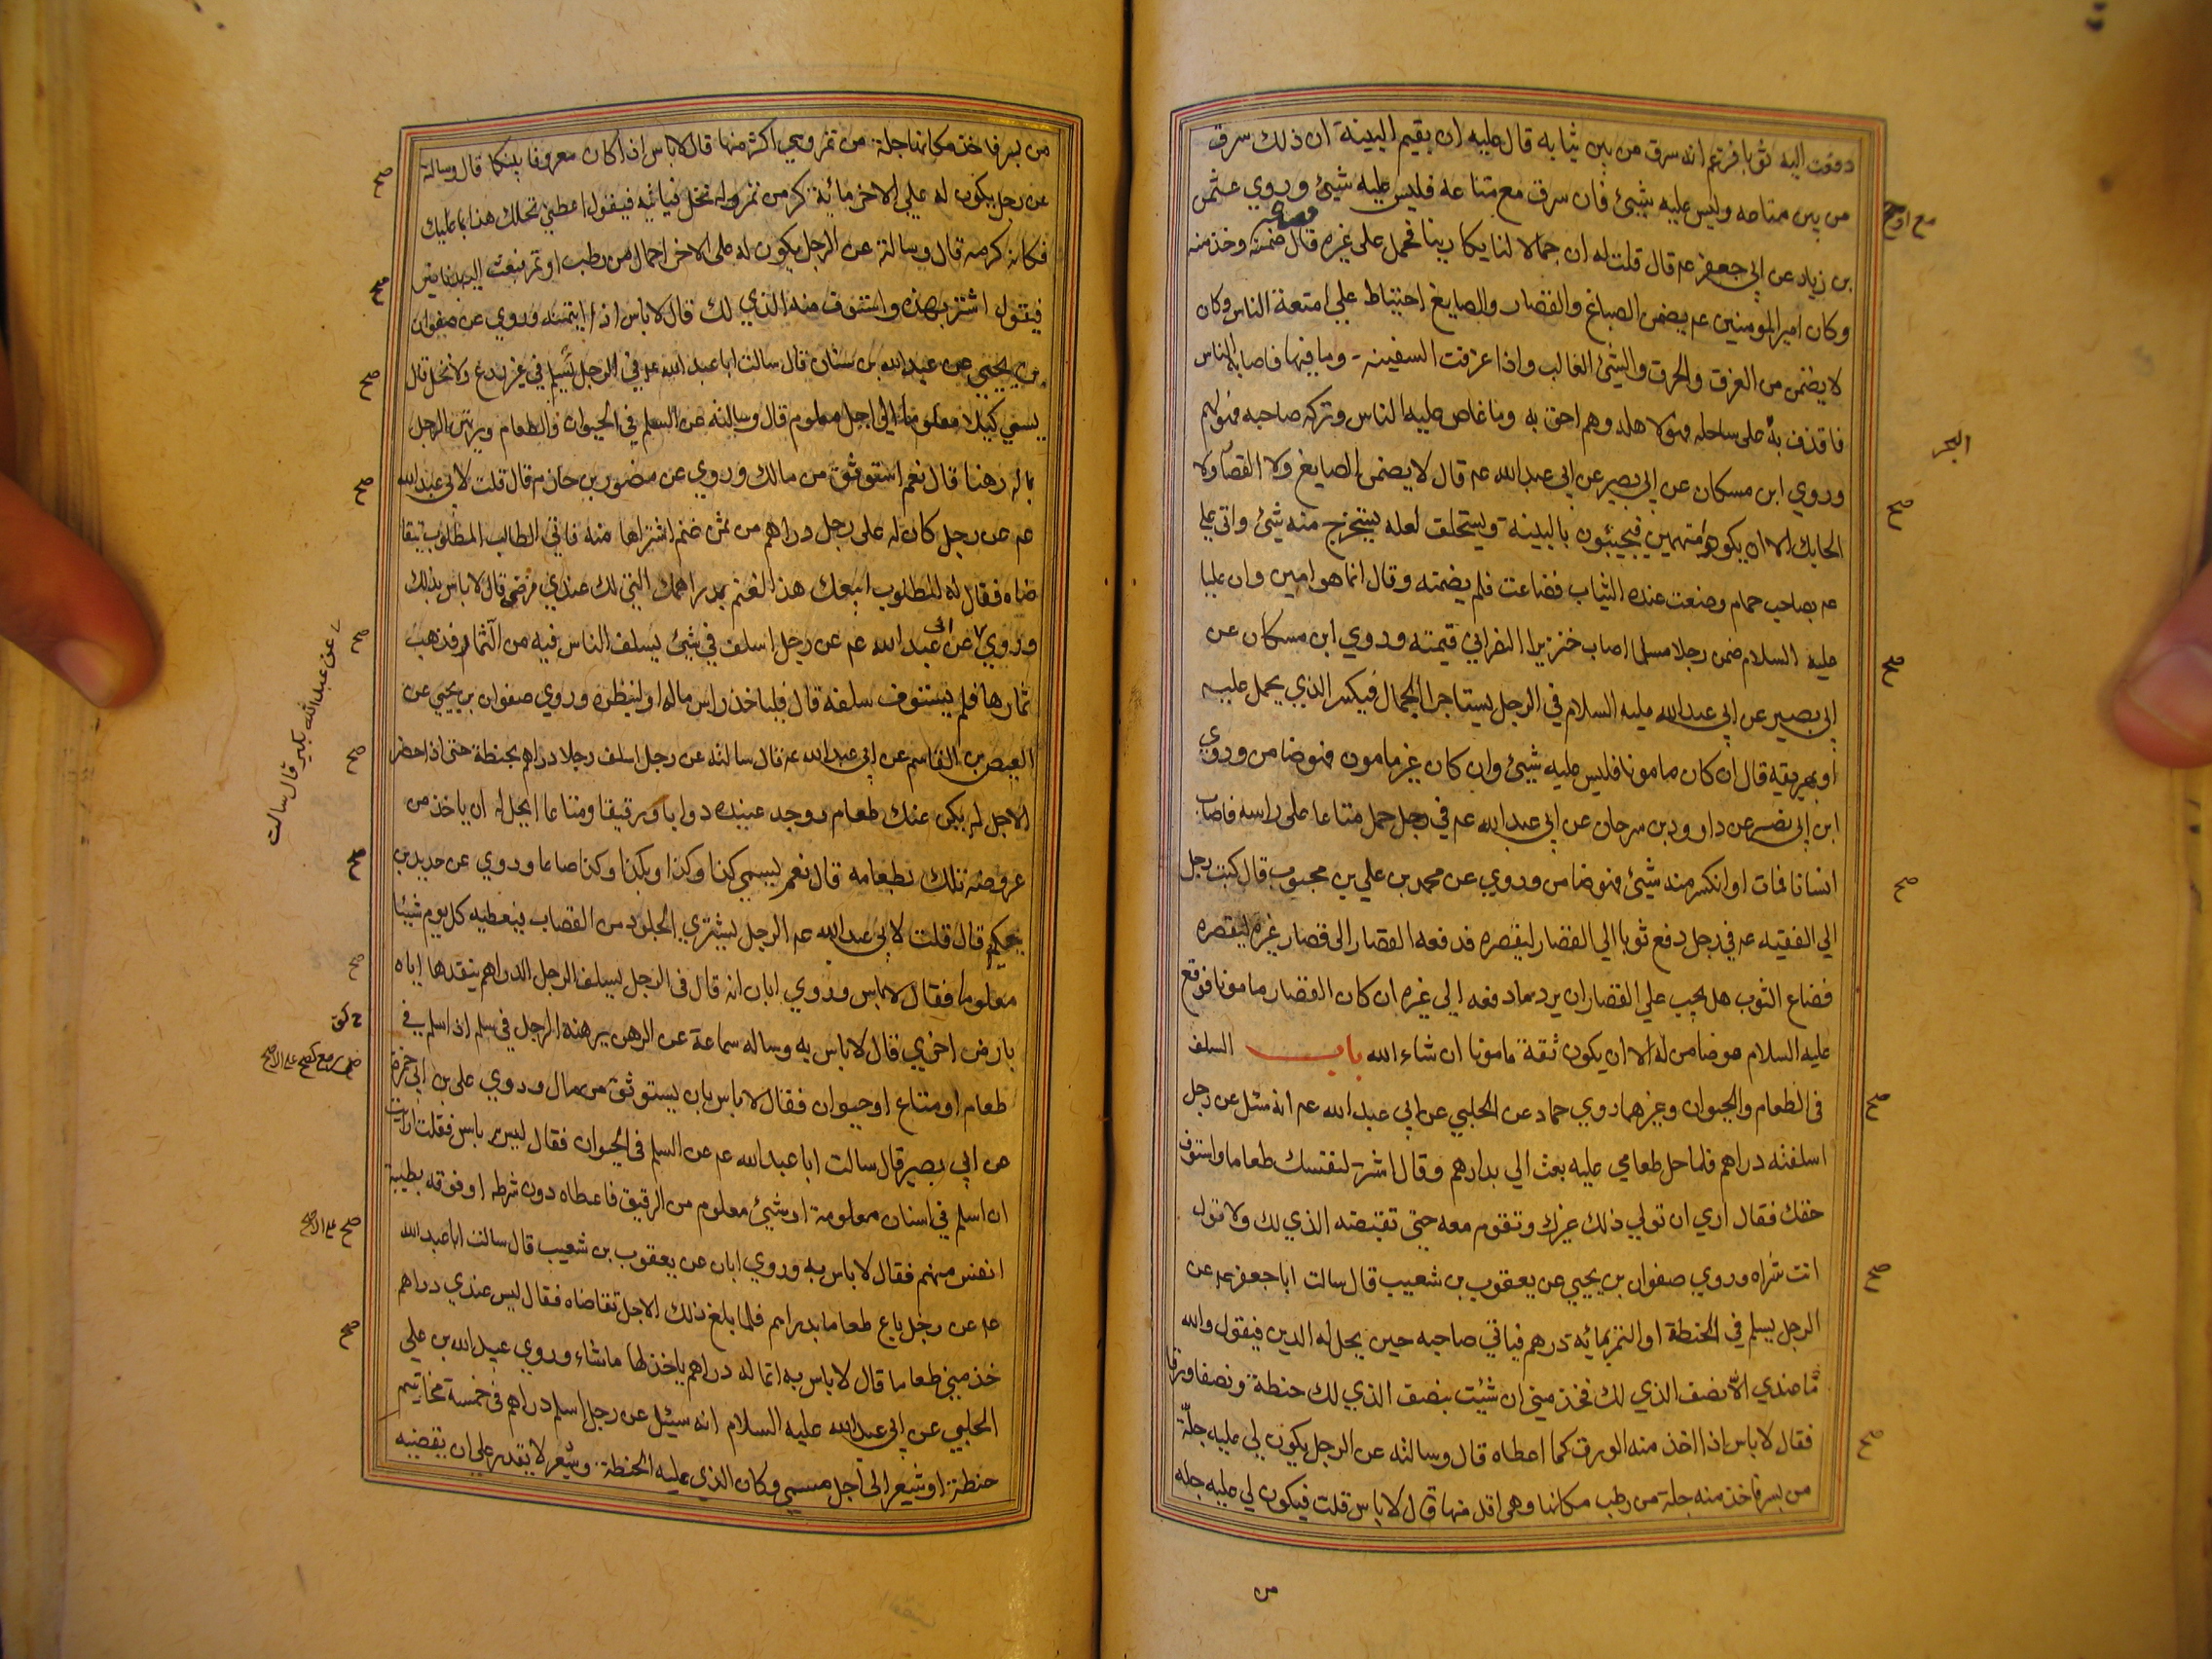 دفعت اليه ثوبا فزعم انه سرق من بين ثيابه قال عليه ان يقيم البينة ان ذلك سرق
من بين متاعه وليس عليه شيئ فان سرق مع متاعه فليس عليه شيئ وروي عثمن
بن زياد عن ابي جعفر عم قال قلت له ان جمالا لنا يكارينا فحمل على غيره فضاع قال ضمنه وخذ منه
وكان امير المومنين عم يضمن الصباغ والقصار والصايغ احتياطا علي امتعة الناس وكان
لا يضمن من الغرق والحرق والشيئ الغالب واذا غرقت السفينة وما فيها فاصابه الناس
فما قذف به على ساحله فهو لاهله وهم احق به وما غاص عليه الناس وتركه صاحبه فهو لهم
وروي ابن مسكان عن ابي بصير عن ابي عبد الله عم قال لا يضمن الصايغ ولا القصار ولا
الحايك الا ان يكونوا متهمين فيجيئون بالبينة ويستحلف لعله يستخرج منه شيئ واتي علي
عم بصاحب حمام وضعت عنده الثياب فضاعت فلم يضمنه وقال انما هو امين وان عليا
عليه السلام ضمن رجلا مسلما اصاب خنزيرا لنصراني قيمته وروي ابن مسكان عن
ابي بصير عن ابي عبد الله عليه السلام في الرجل يستاجر الجمال فيكسر الذي يحمل عليه
او يهريقه قال ان كان مامونا فليس عليه شيئ وان كان غير مامون فهو ضامن وروي
ابن ابي نصر عن داود بن سرحان عن ابي عبد الله عم في رجل حمل متاعا على راسه فاصاب
انسانا فمات او انكسر منه شيئ فهو ضامن وروي عن محمد بن علي بن محبوب قال كتب رجل
الي الفقيه عم في رجل دفع ثوبا الي القصار ليقصره فدفعه القصار الى قصار غيره ليقصره
فضاع الثوب هل يجب علي القصار ان يرد ما دفعه الي غيره ان كان القصار مامونا فوقع
عليه السلام هو ضامن له الا ان يكون ثقة مامونا ان شاء الله باب السلف
في الطعام والحيوان وغيرهما روي حماد عن الحلبي عن ابي عبد الله عم انه سئل عن رجل
اسلفته دراهم فلما حل طعامي عليه بعث الي بدارهم وقال اشتر لنفسك طعاما واستوف
حقك فقال اري ان تولي ذلك غيرك وتقوم معه حتى تقبضه الذي لك ولا تول
انت شراه وروي صفوان بن يحيي عن يعقوب بن شعيب قال سالت ابا جعفر عم عن
الرجل يسلم في الحنطة او التمر بمائة درهم فياتي صاحبه حين يحل له الدين فيقول والله
ما عندي الا نصف الذي لك فخذ مني ان شيت بنصف الذي لك حنطة ونصفا ورقا
فقال لا باس اذا اخذ منه الورق كما اعطاه قال وسالته عن الرجل يكون لي عليه جلة
من بسر فاخذ منه جلة من رطب مكانها وهي اقل منها قال لا باس قلت فيكون لي عليه جله
من
البحر
صح
من بسر فاخذ مكانها جلة من تمر وهي اكثر منها قال لا باس اذا كان معروفا بينكما قال وسالته
عن رجل يكون له علي الاخر مائة كر من تمر وله نخل فياتيه فيقول اعطني نخلك هذا بما عليك
فكانه كرهه قال وسالته عن الرجل يكون له على الاخر احمال من رطب او تمر فيبعث اليه بدنانير
فيقول اشتر بهذه واستوف منه الذي لك قال لا باس اذا ايتمنه وروي عن صفوان
بن يحيي عن عبد الله بن سنان قال سالت ابا عبد الله عم في الرجل يسلم في غير زرع ولا نخل قال
يسمي كيلا معلوما الي اجل معلوم قال وسالته عن السلم في الحيوان والطعام ويرتهن الرجل
بماله رهنا قال نعم استوثق من مالك وروي عن منصور بن حازم قال قلت لابي عبد الله
عم عن رجل كان له على رجل دراهم من ثمن غنم اشتراها منه فاتي الطالب المطلوب يتقا
ضاه فقال له المطلوب ابيعك هذا الغنم بدراهمك التي لك عندي فرضي قال لا باس بذلك
وروي عن ابي عبد الله عم عن رجل اسلف في شيئ يسلف الناس فيه من الثمار فذهب
ثمارها فلم يستوف سلفه قال فلياخذ راس ماله او لينظره وروي صفوان بن يحيي عن
العيص بن القاسم عن ابي عبد الله عم قال سالته عن رجل اسلف رجلا دراهم بحنطة حتى اذا حضر
الاجل لم يكن عنده طعام ووجد عنده دوابا ورقيقا ومتاعا ايحل له ان ياخذ من
عروضه تلك بطعامه قال نعم يسمي كذا وكذا وبكذا وكذا صاعا وروي عن حديد بن
حكيم قال قلت لابي عبد الله عم الرجل يشتري الجلود من القصاب فيعطيه كل يوم شيئا
معلوما فقال لا باس وروي ابان انه قال في الرجل يسلف الرجل الدراهم ينقدها اياه
بارض اخري قال لا باس به وساله سماعة عن الرهن يرهنه الرجل في سلم اذا اسلم في
طعام او متاع او حيوان فقال لا باس بان يستوثق من مال وروي علي بن ابي حمزة
عن ابي بصير قال سالت ابا عبد الله عم عن السلم في الحيوان فقال ليس به باس فقلت ارايت
ان اسلم في اسنان معلومة او شيئ معلوم من الرقيق فاعطاه دون شرطه او فوقه بطيبة
انفس منهم فقال لا باس به وروي ابان عن يعقوب بن شعيب قال سالت ابا عبد الله
عم عن رجل باع طعاما بدراهم فلما بلغ ذلك الاجل تقاضاه فقال ليس عندي دراهم
خذ مني طعاما قال لا باس به انما له دراهم ياخذ لها ما شاء وروي عبيد الله بن علي
الحلبي عن ابي عبد الله عليه السلام انه سيئل عن رجل اسلم دراهم في خمسة مخاتيم
حنطة او شعير الى اجل مسمي وكان الذي عليه الحنطة وشعير لا يقدر علي ان يقضيه
عن عبد الله بكير قال سالت